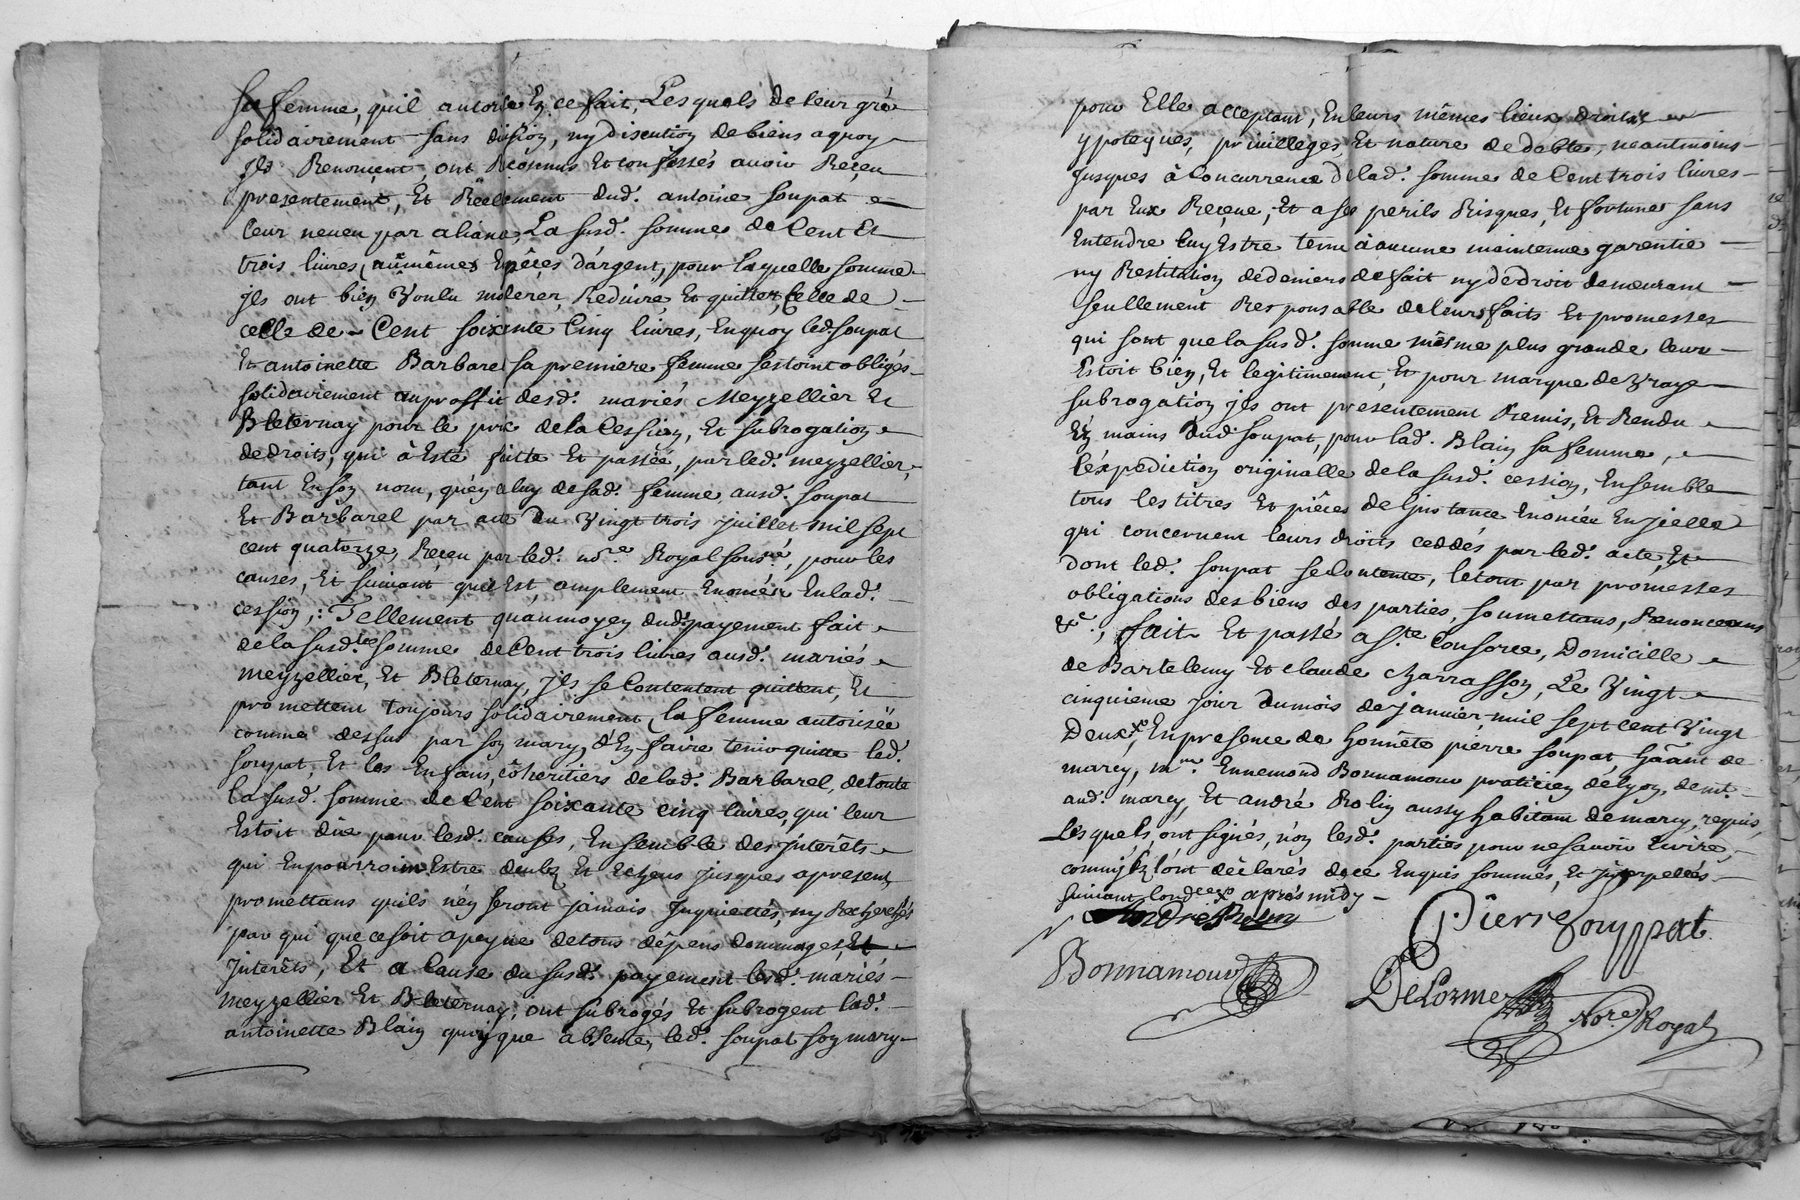 sa femme, quil autorise En ce fait, Lesquels de leur gré
solidairement sans division, ny discution de biens a quoy
Jls Renoncent, ont Reconnus Et confessés avoir Reçeu
presentement, Et Réelement dud. antoine soupat
leur neveu par aliance, La susd. somme de Cent Et
trois livres, aũ mêmes Espêces d'argent, pour laquelle somme
jls ont bien Voulu moderer, Reduire, Et quitter, Celle de
celle de Cent soixante Cinq livres, En quoy led. soupat
Et antoinette Barbarel sa premiere femme sestoint obligés
solidairement au proffit desd. mariés Meyzellier Et
Bleternay pour le prix de la Cession, Et subrogation
de droits, qui à Esté faitte Et passéé, par led. meyzellier,
tant En son nom, qu'en celuy de sad. femme ausd. soupat
Et Barbarel par acte du Vingt trois juillet mil sept
cent quatorze, Reçeu par led. no.re Royal sous.né, pour les
causes, Et suivant quil Est amplement Enoncée En lad.
cession,: Tellement qu'au moyen dud. payement fait
de la susd.te somme de Cent trois livres ausd. mariés
meyzellier, Et Bleternay, jls se Contentent quittent, Et
promettent toujours solidairement, la femme autorisée
comme dessus par son mary, d'En faire tenir quitte led.
soupat, Et les Enfans, côheritiers de lad. Barbarel, de toute
la susd. somme de Cent soixante cinq livres, qui leur
Estoit düe pour lesd. causes, En semble des jnterêts
qui En pourroint Estre deubz Et Echeus jusques apresent,
promettans quils n'en seront jamais Jnquiettés, ny Recherchés
par qui que ce soit a peyne de tous dêpens dommages, Et
Jnterêts, Et a Cause du susd. payement lesd. mariés
meyzellier Et Bleternay, ont subrogés Et subrogent lad.
antoinette Blain quoy que absente, led. soupat son mary
pour Elle acceptant, En leurs mêmes lieux droits
ypoteques, privilleges, Et nature de dobte, neantmoins
Jusques à Concurrence delad. somme de Cent trois livres
par Eux Reçeue, Et a ses perils Risques, Et fortunes sans
Entendre luy Estre tenu à aucune maintenue garentie
ny Restitution de deniers de fait ny de droit demeurant
seullement Responsable de leurs faits Et promesses
qui sont que la susd. somme mésme plus grande leur
Estoit bien, Et legitimement, Et pour marque de Vraye
subrogation jls ont presentement Remis, Et Rendu
Ez mains dud. soupat, pour lad. Blain sa femme,
l'éxpediction originalle de la susd. cession, Ensemble
tous les titres Et pièces de Jnstance Enoncée En jcelle
qui concernent leurs droits ceddés par led. acte, Et
dont led. soupat se Contente, le tout par promesses
obligations des biens des parties, soumettans, Renonceans
&c., fait Et passé a S.te Consorce, Domicille
de Bartelemy Et claude charrasson, Le Vingt
cinquieme jour du mois de janvier mil sept cent Vingt
Deux, En presence de honnête pierre soupat, hãant de
marcy, m.re Ennemond Bonnamour praticien de lyon, demt.
aud. marcy, Et andré Rolin aussy habitant de marcy, requis,
Lesquels, ont signés, n'on lesd. parties pour ne savoir Ecrire,
comm'ilz l'ont déclarés de ce Enquis sommés, Et jnterpellés
suivant l'ord.ce aprés midy
Andre Rolin
Pierre Souppat
Bonnamour
DeLorme
No.re Royal